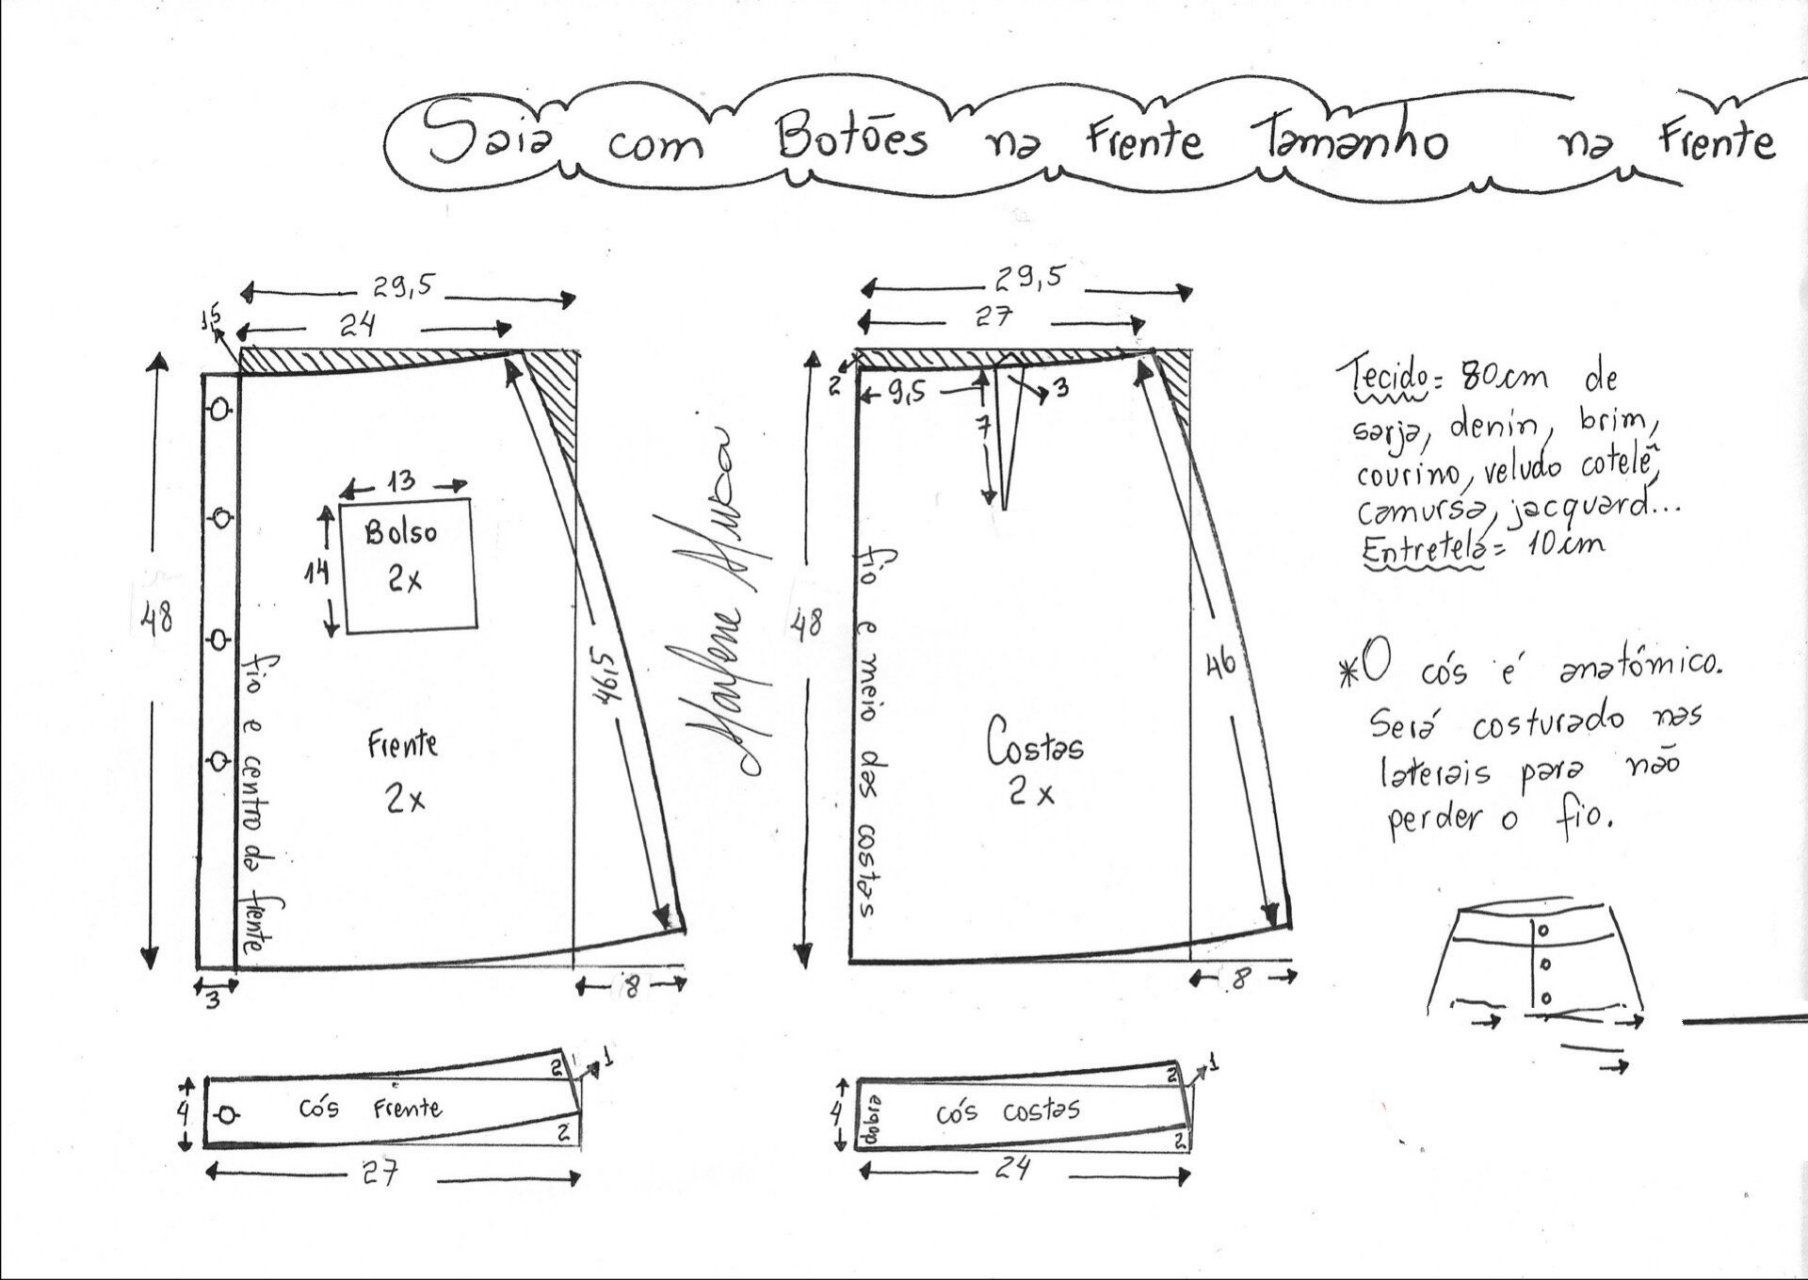 Saia com Botões na Frente Tamanho na Frente
29,5
24
1,5
48
13
Bolso
2x
14
46,5
Frente
2x
fio e centro da frente
3
8
Marlene Mukai
29,5
27
2
9,5
3
7
48
fio e meio das costas
46
Costas
2x
8
Tecido= 80cm de
sarja, denin, brim,
courino, veludo cotelê,
camursa, jacquard...
Entretela= 10cm
*O cós é anatômico.
Será costurado nas
laterais para não
perder o fio.
4
cós Frente
2
1
2
27
4
dobra
cós costas
2
1
2
24